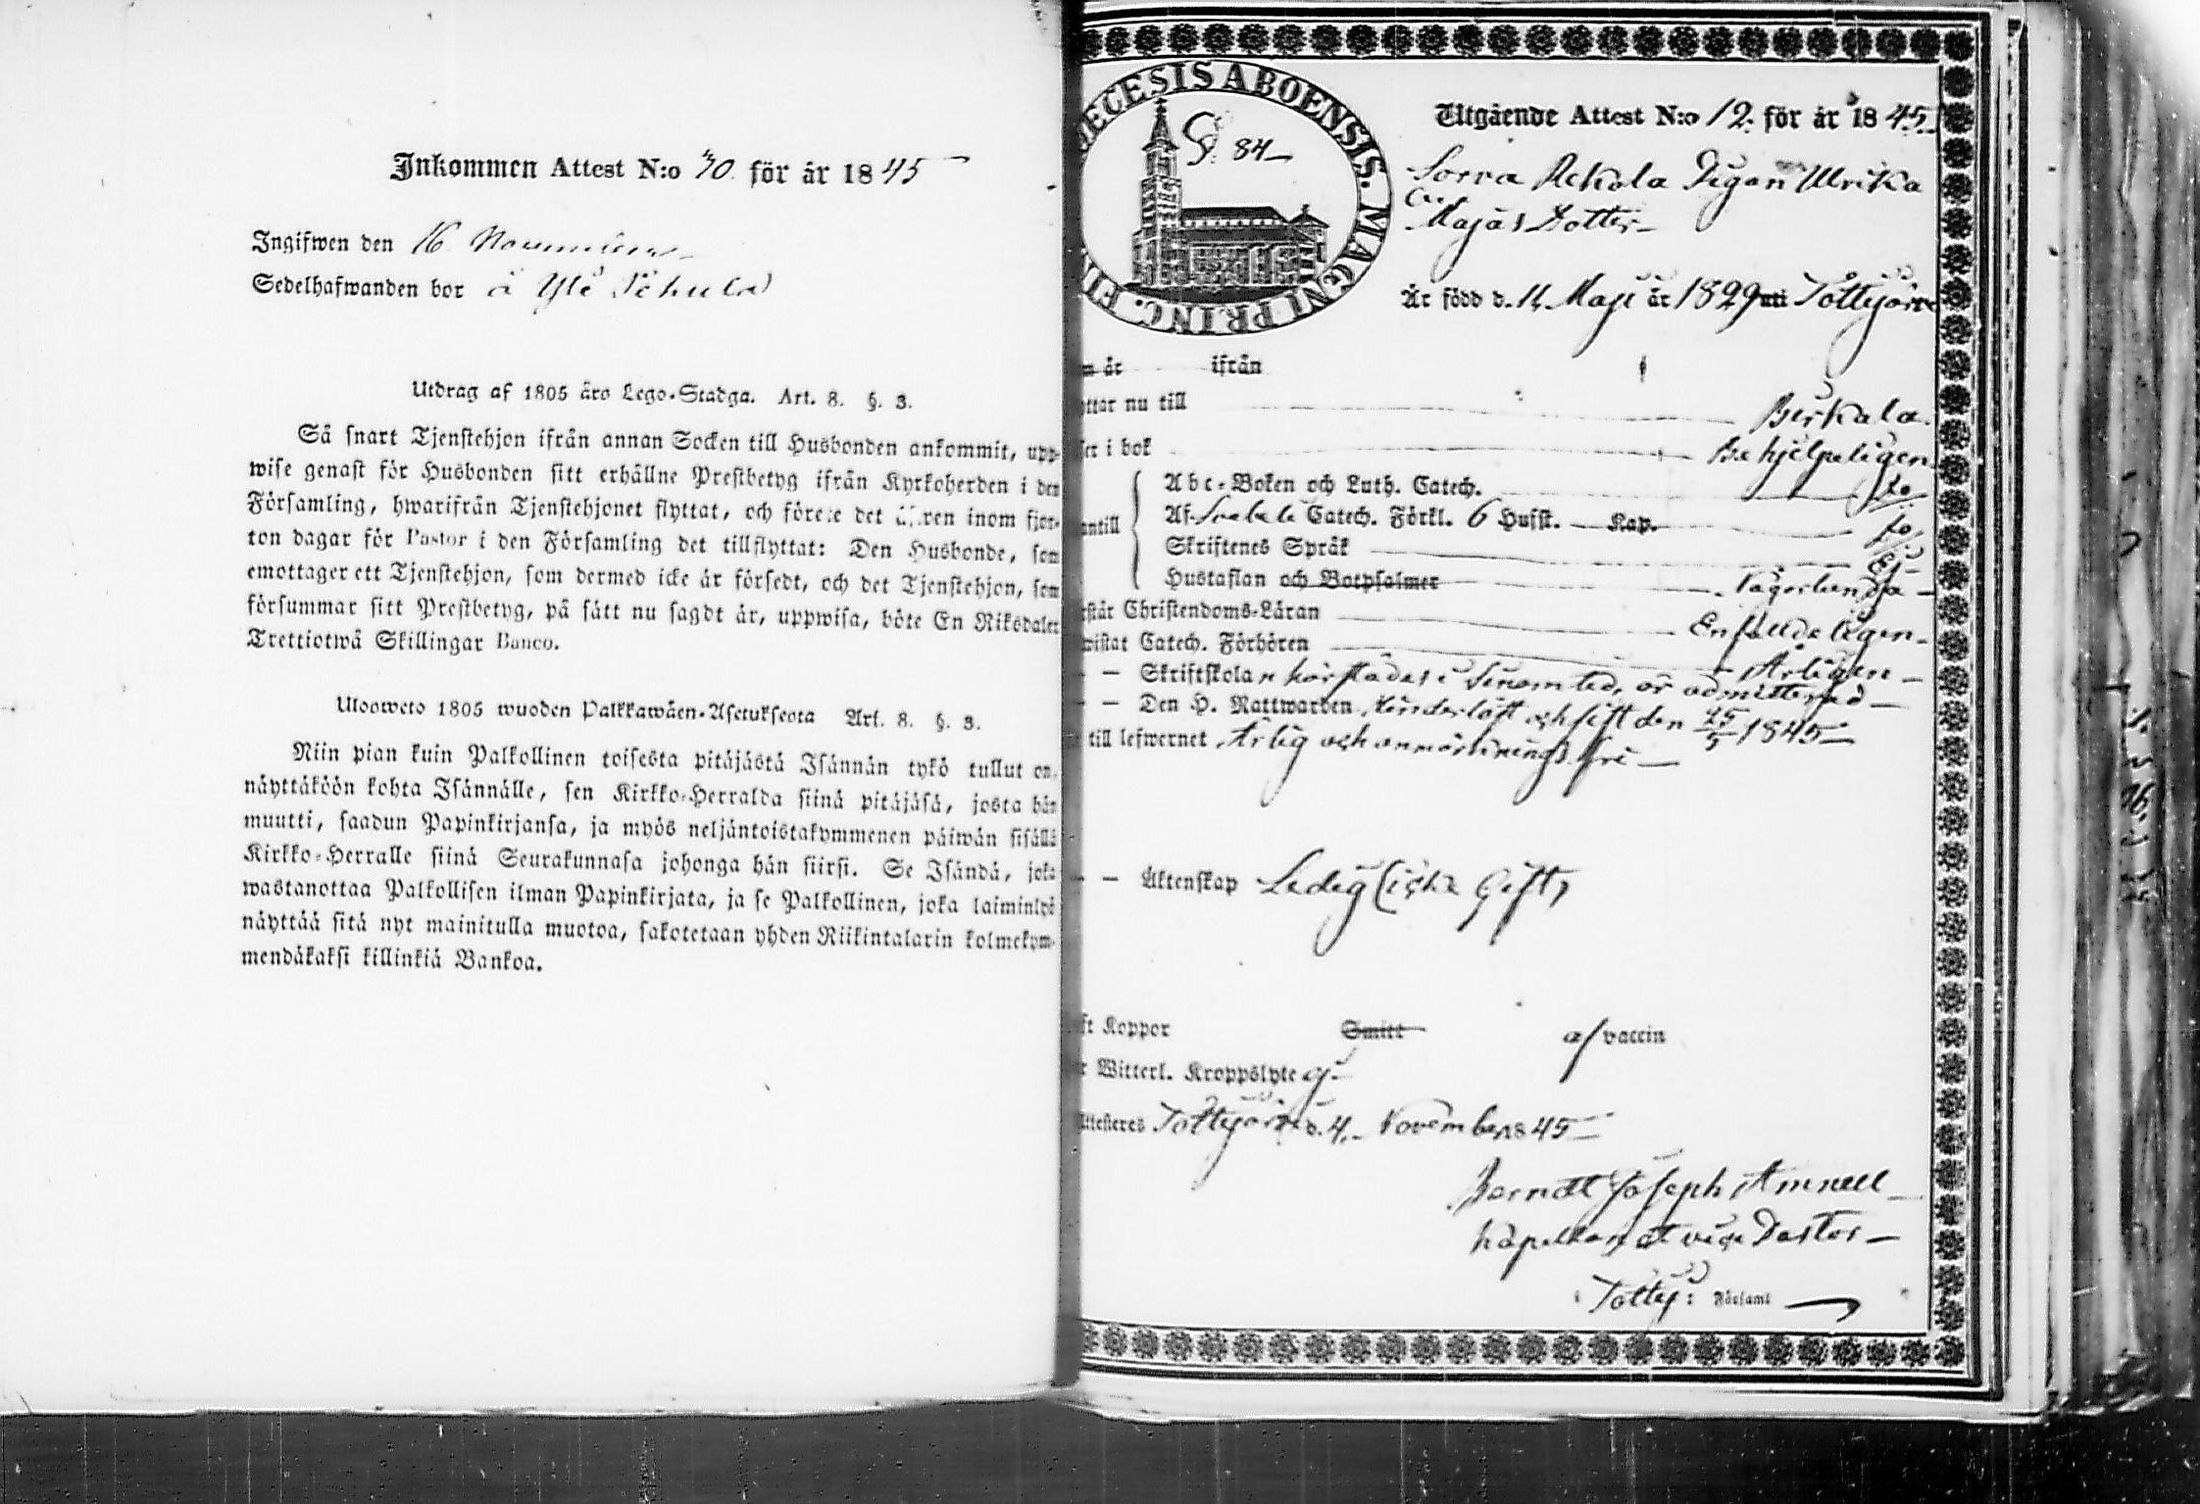 Inkommen Attest N:o 30. för år 1845
Ingifwen den 16 November
Sedelhafwanden bor å Yle
Utdrag af 1805 års Lego-Stadga. Art. 8. §. 3.
Så snart Tjenstehjon ifrån annan Socken till Husbonden ankommit, upp-
wise genast för Husbonden sitt erhållne Prestbetyg ifrån Kyrkoherden i den
Församling, hwarifrån Tjenstehjonet flyttat, och förete det äfven inom fjor-
ton dagar för Pastor i den Församling det tillflyttat: Den Husbonde, som
emottager ett Tjenstehjon, som dermed icke är försedt, och det Tjenstehjon, som
försummar sitt Prestbetyg, på sätt nu sagdt är, uppwisa, böte En Riksdaler
Trettiotwå Skillingar Banco.
Ulosweto 1805 wuoden Palkkawäen-Asetuksesta Art. 8. §. 3.
Niin pian kuin Palkollinen toisesta pitäjästä Isännän tykö tullut on,
näyttäköön kohta Isännälle, sen Kirkko-Herralda siinä pitäjäsä, josta hän
muutti, saadun Papinkirjansa, ja myös neljäntoistakymmenen päiwän sisällä
Kirkko-Herralle siinä Seurakunnasa johonga hän siirsi. Se Isändä, joka
wastanottaa Palkollisen ilman Papinkirjata, ja se Palkollinen, joka laiminlyö
näyttää sitä nyt mainitulla muotoa, sakotetaan yhden Riikintalarin kolmekym-
mendäkaksi killinkiä Bankoa.
DIOECESIS ABOENSIS. MAGNI PRINC. FI
84
Utgående Attest N:o 12. för år 1845
Sorva Rekola Pigan Ulrika
Majas Dotter
Är född d. 11 Maji år 1829 uti Tottijärvi
m år ifrån
ttar nu till Birkala.
ser i bok Behjelpeligen
Abc-Boken och Luth. Catech. do
Af Svebeli Catech. Förkl. 6 Hufst. Kap. do
antill
Skriftenes Språk Ej
Hustaflan och Botpsalmer Någorlunda
rstår Christendoms-Läran Enfaldeligen
wistat Catech. Förhören Årligen
Skriftskolan härstädes i sinom tid, är admitterad
Den H. Nattwarden och sitt den 25/5 1845
till lefwernet Ärlig och anmärkningsfri
Äktenskap Ledig (icke Gift)
ft Koppor Smitt af vaccin
r Witterl. Kroppslyte ej
Attesteres Tottijärvi d. 4. November 1845
Berndt Joseph Amnell
Kapellan et vice Pastor
Tottij: Församl